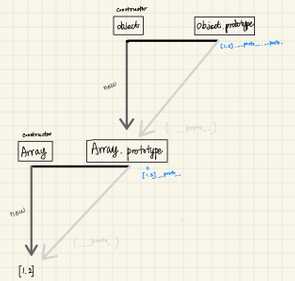 constructor
Object
Object.prototype
[1,2].__proto__.__proto__
new
(.__proto__)
constructor
Array
Array.prototype
[1,2].__proto__
new
(.__proto__)
[1,2]